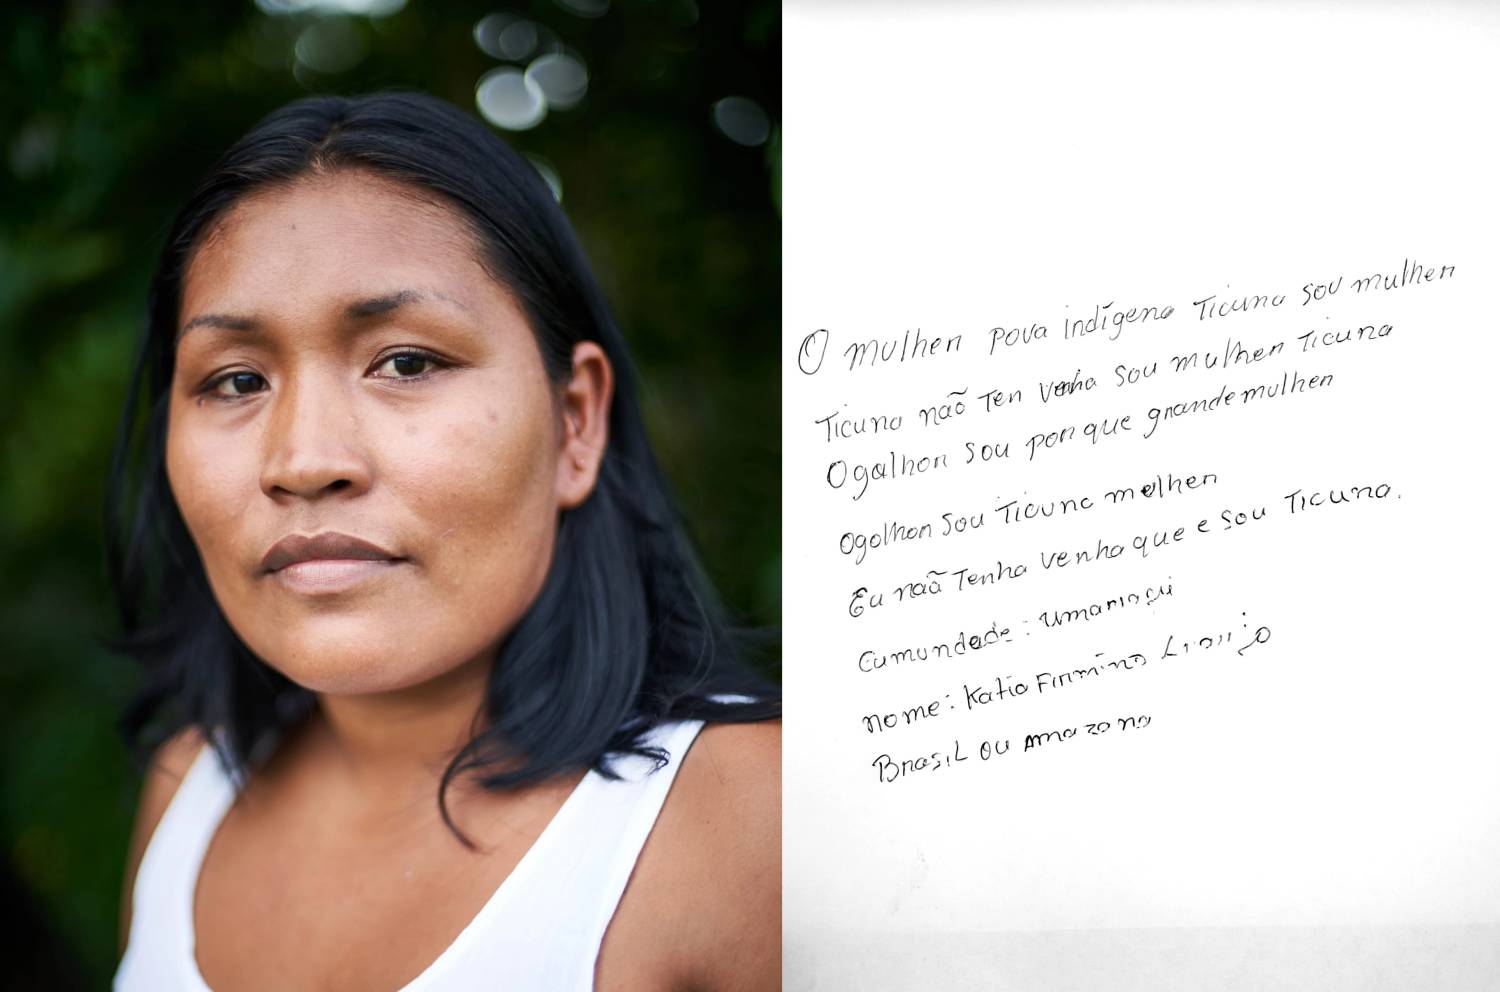 O mulhen pova indígena Ticuna sou mulhen
Ticuna não Ten venha sou mulhen Ticuna
O galhon sou pon que gnande mulhen
ogolhon sou Ticuna melhen
Eu naã Tenha venha que e sou Ticuna.
Cumundade : umaniaçui
nome : Katia Finmino
Bnasil ou amazona